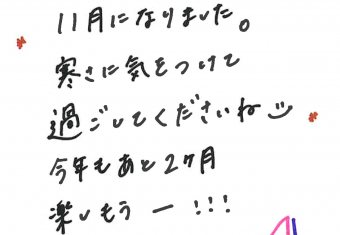 11月になりました。
寒さに気をつけて
過ごしてくださいね
今年もあと2ヶ月
楽しもうー!!!